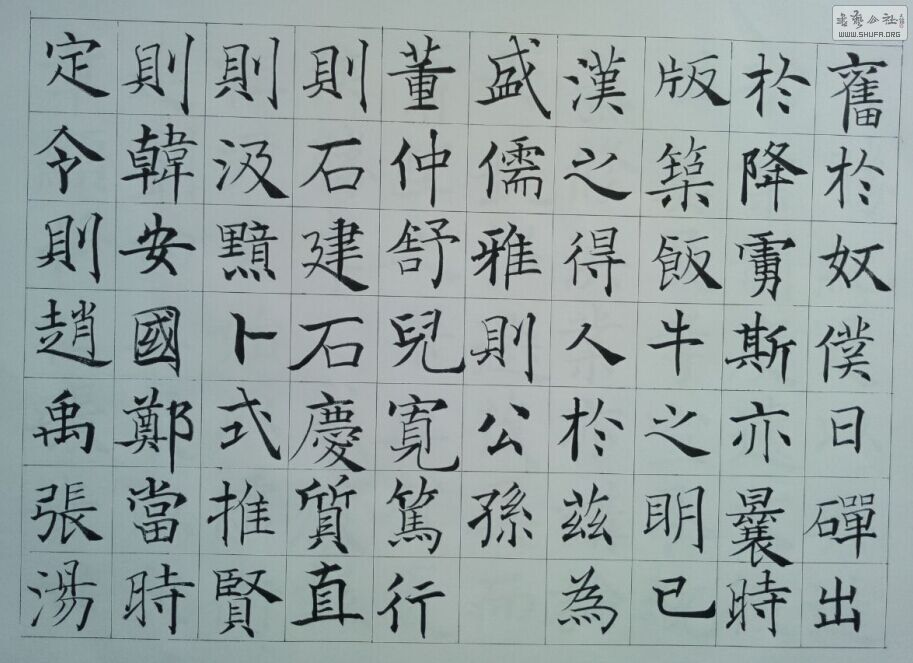 奮於奴僕日磾出
於降虜斯亦曩時
版築飯牛之明已
漢之得人於茲為
盛儒雅則公孫
董仲舒兒寬篤行
則石建石慶質直
則汲黯卜式推賢
則韓安國鄭當時
定令則趙禹張湯
書藝公社
WWW.SHUFA.ORG